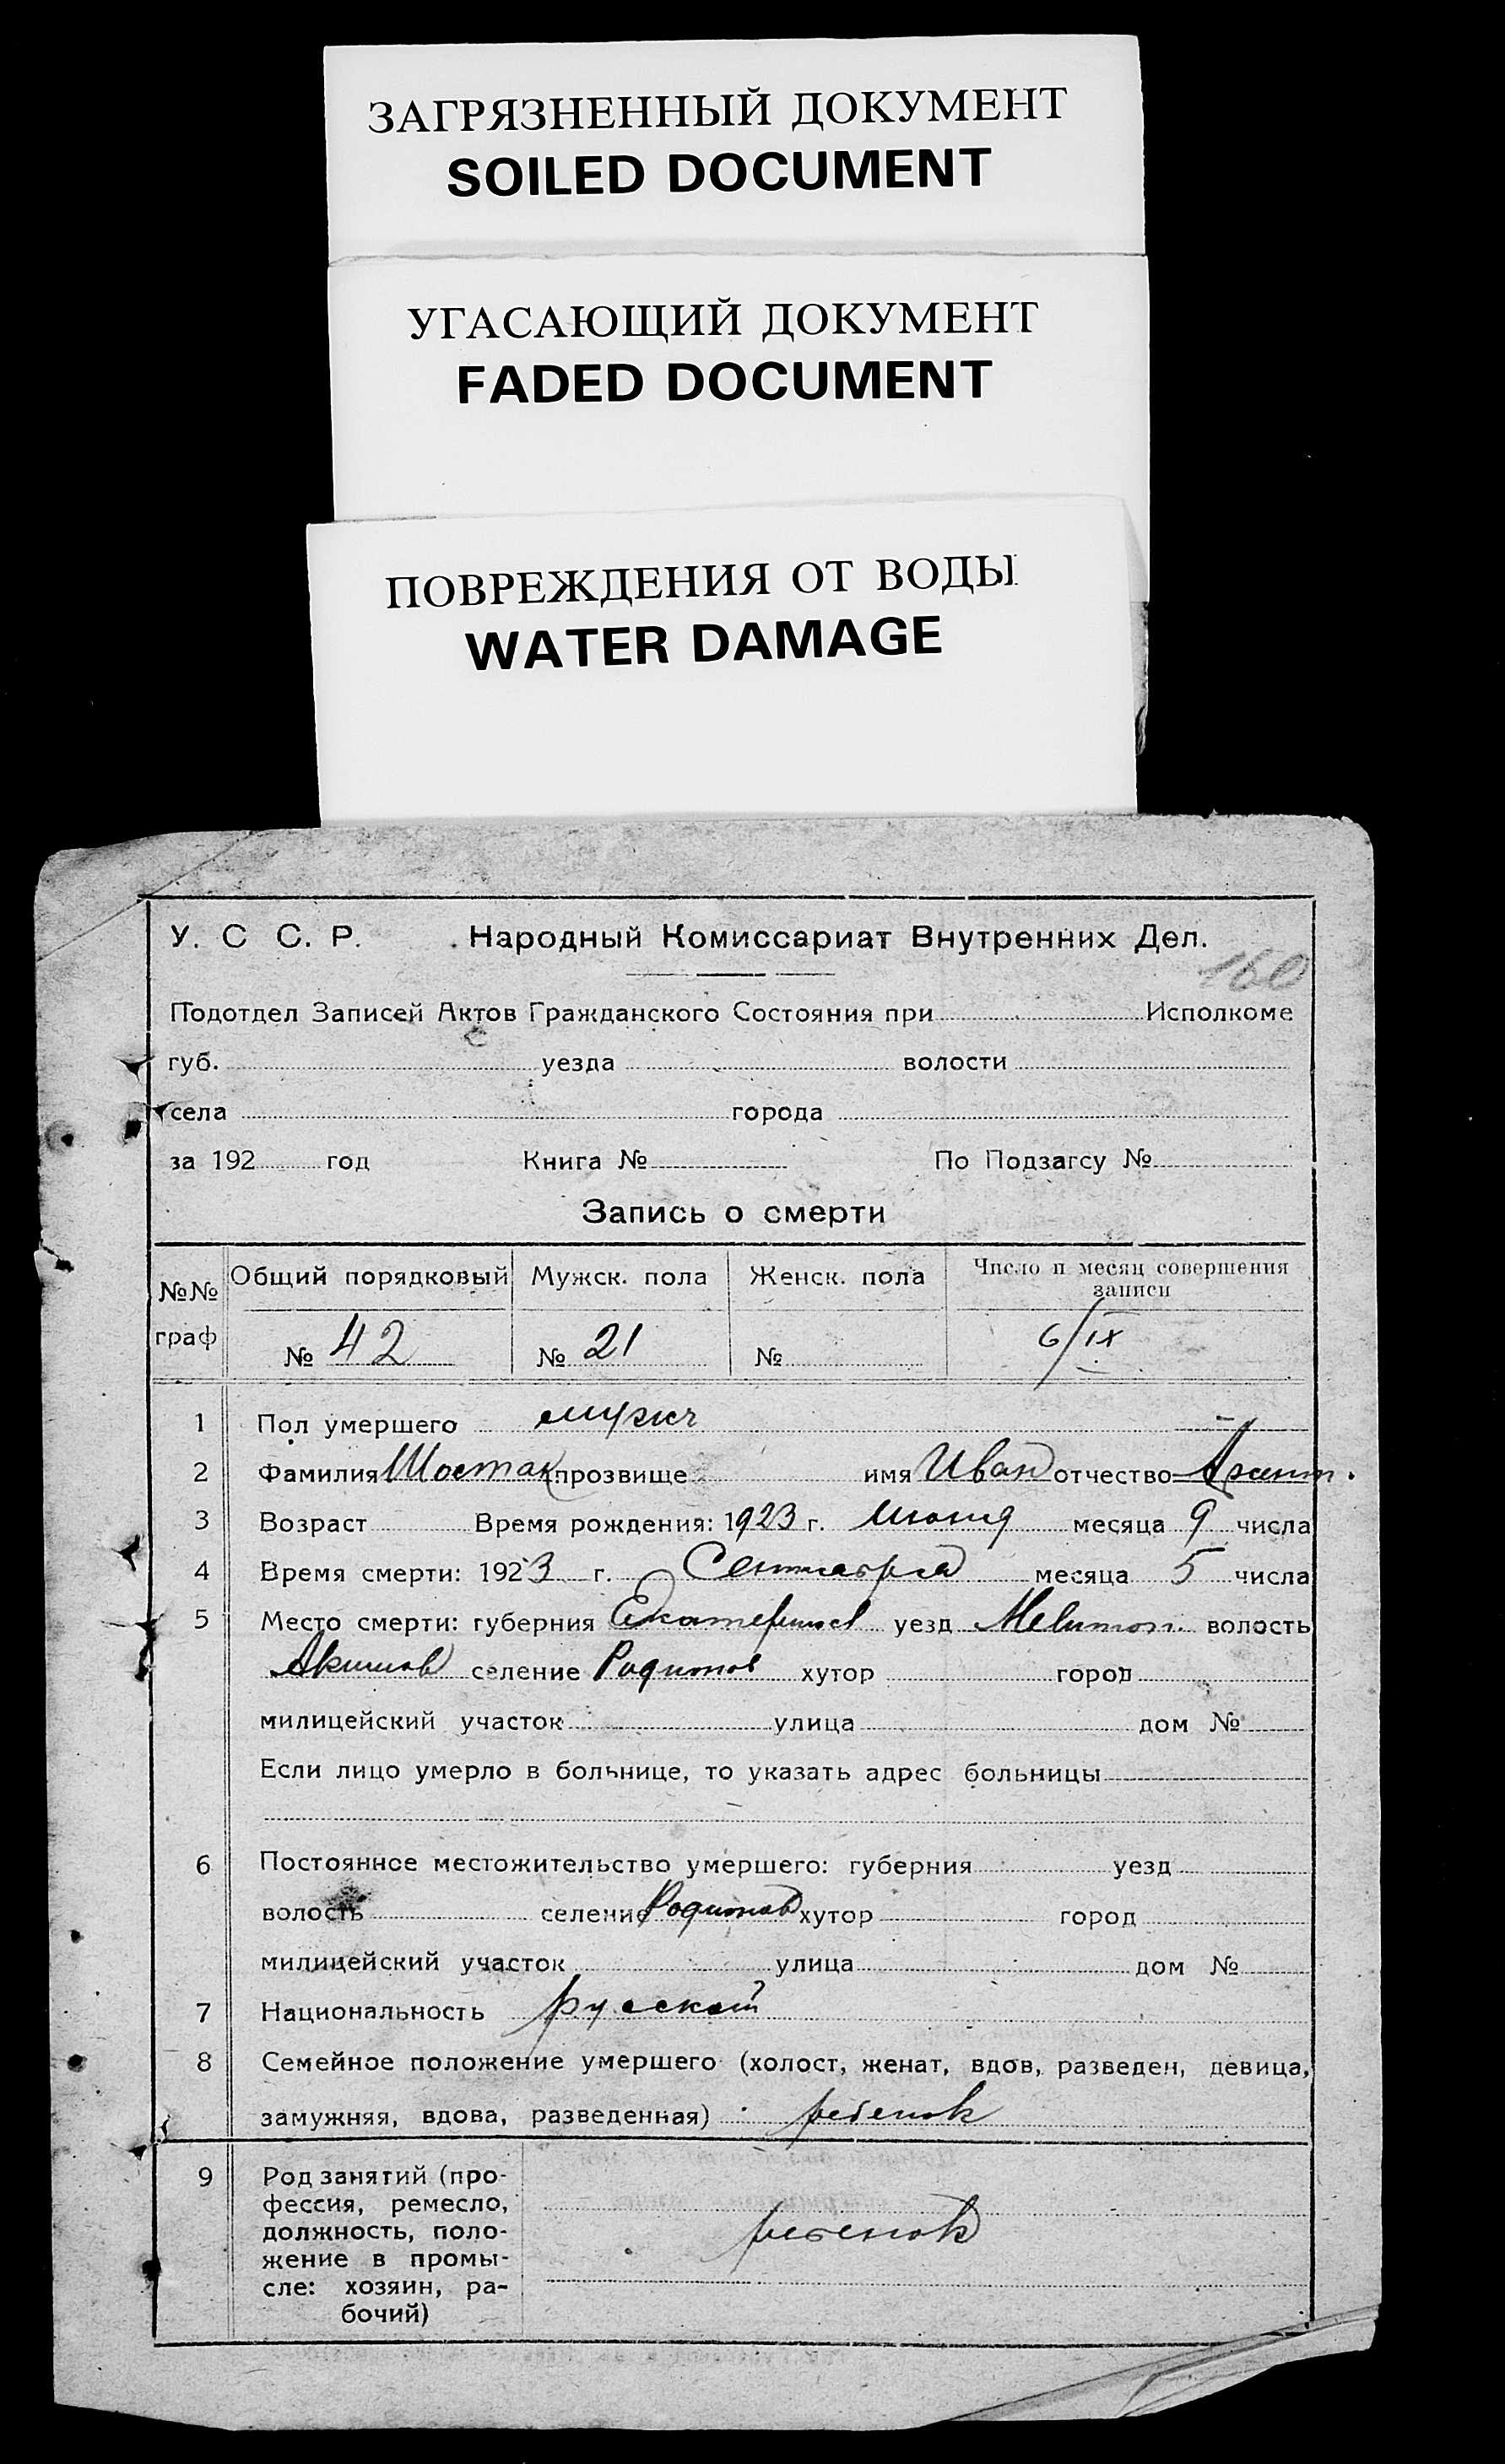 ЗАГРЯЗНЕННЫЙ ДОКУМЕНТ
SOILED DOCUMENT
УГАСАЮЩИЙ ДОКУМЕНТ
FADED DOCUMENT
ПОВРЕЖДЕНИЯ ОТ ВОДЫ
WATER DAMAGE
У. С С. Р. Народный Комиссариат Внутренних Дел.
160
Подотдел Записей Актов Гражданского Состояния при Исполкоме
губ. уезда волости
села города
за 192 год Книга № По Подзагсу №
Запись о смерти
№№ граф Общий порядковый Мужск. пола Женск. пола Число и месяц совершения записи
№ 42 № 21 № 6/IX
1 Пол умершего мужск
2 Фамилия Шостак прозвище имя Иван отчество
3 Возраст Время рождения: 1923 г. Июня месяца 9 числа
4 Время смерти: 1923 г. Сентября месяца 5 числа
5 Место смерти: губерния Екатериносл уезд Мелитоп. волость
Акимов селение Родионов хутор город
милицейский участок улица дом №
Если лицо умерло в больнице, то указать адрес больницы
6 Постоянное местожительство умершего: губерния уезд
волость селение Родионов хутор город
милицейский участок улица дом №
7 Национальность русский
8 Семейное положение умершего (холост, женат, вдов, разведен, девица,
замужняя, вдова, разведенная) ребенок
9 Род занятий (про-
фессия, ремесло,
должность, поло-
жение в промы-
сле: хозяин, ра-
бочий)
ребенок